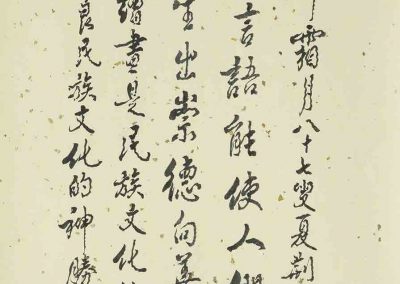 良民族文化的神勝
繪畫是民族文化
生出崇德向善
言語能使人
霜月八十七叟夏荊